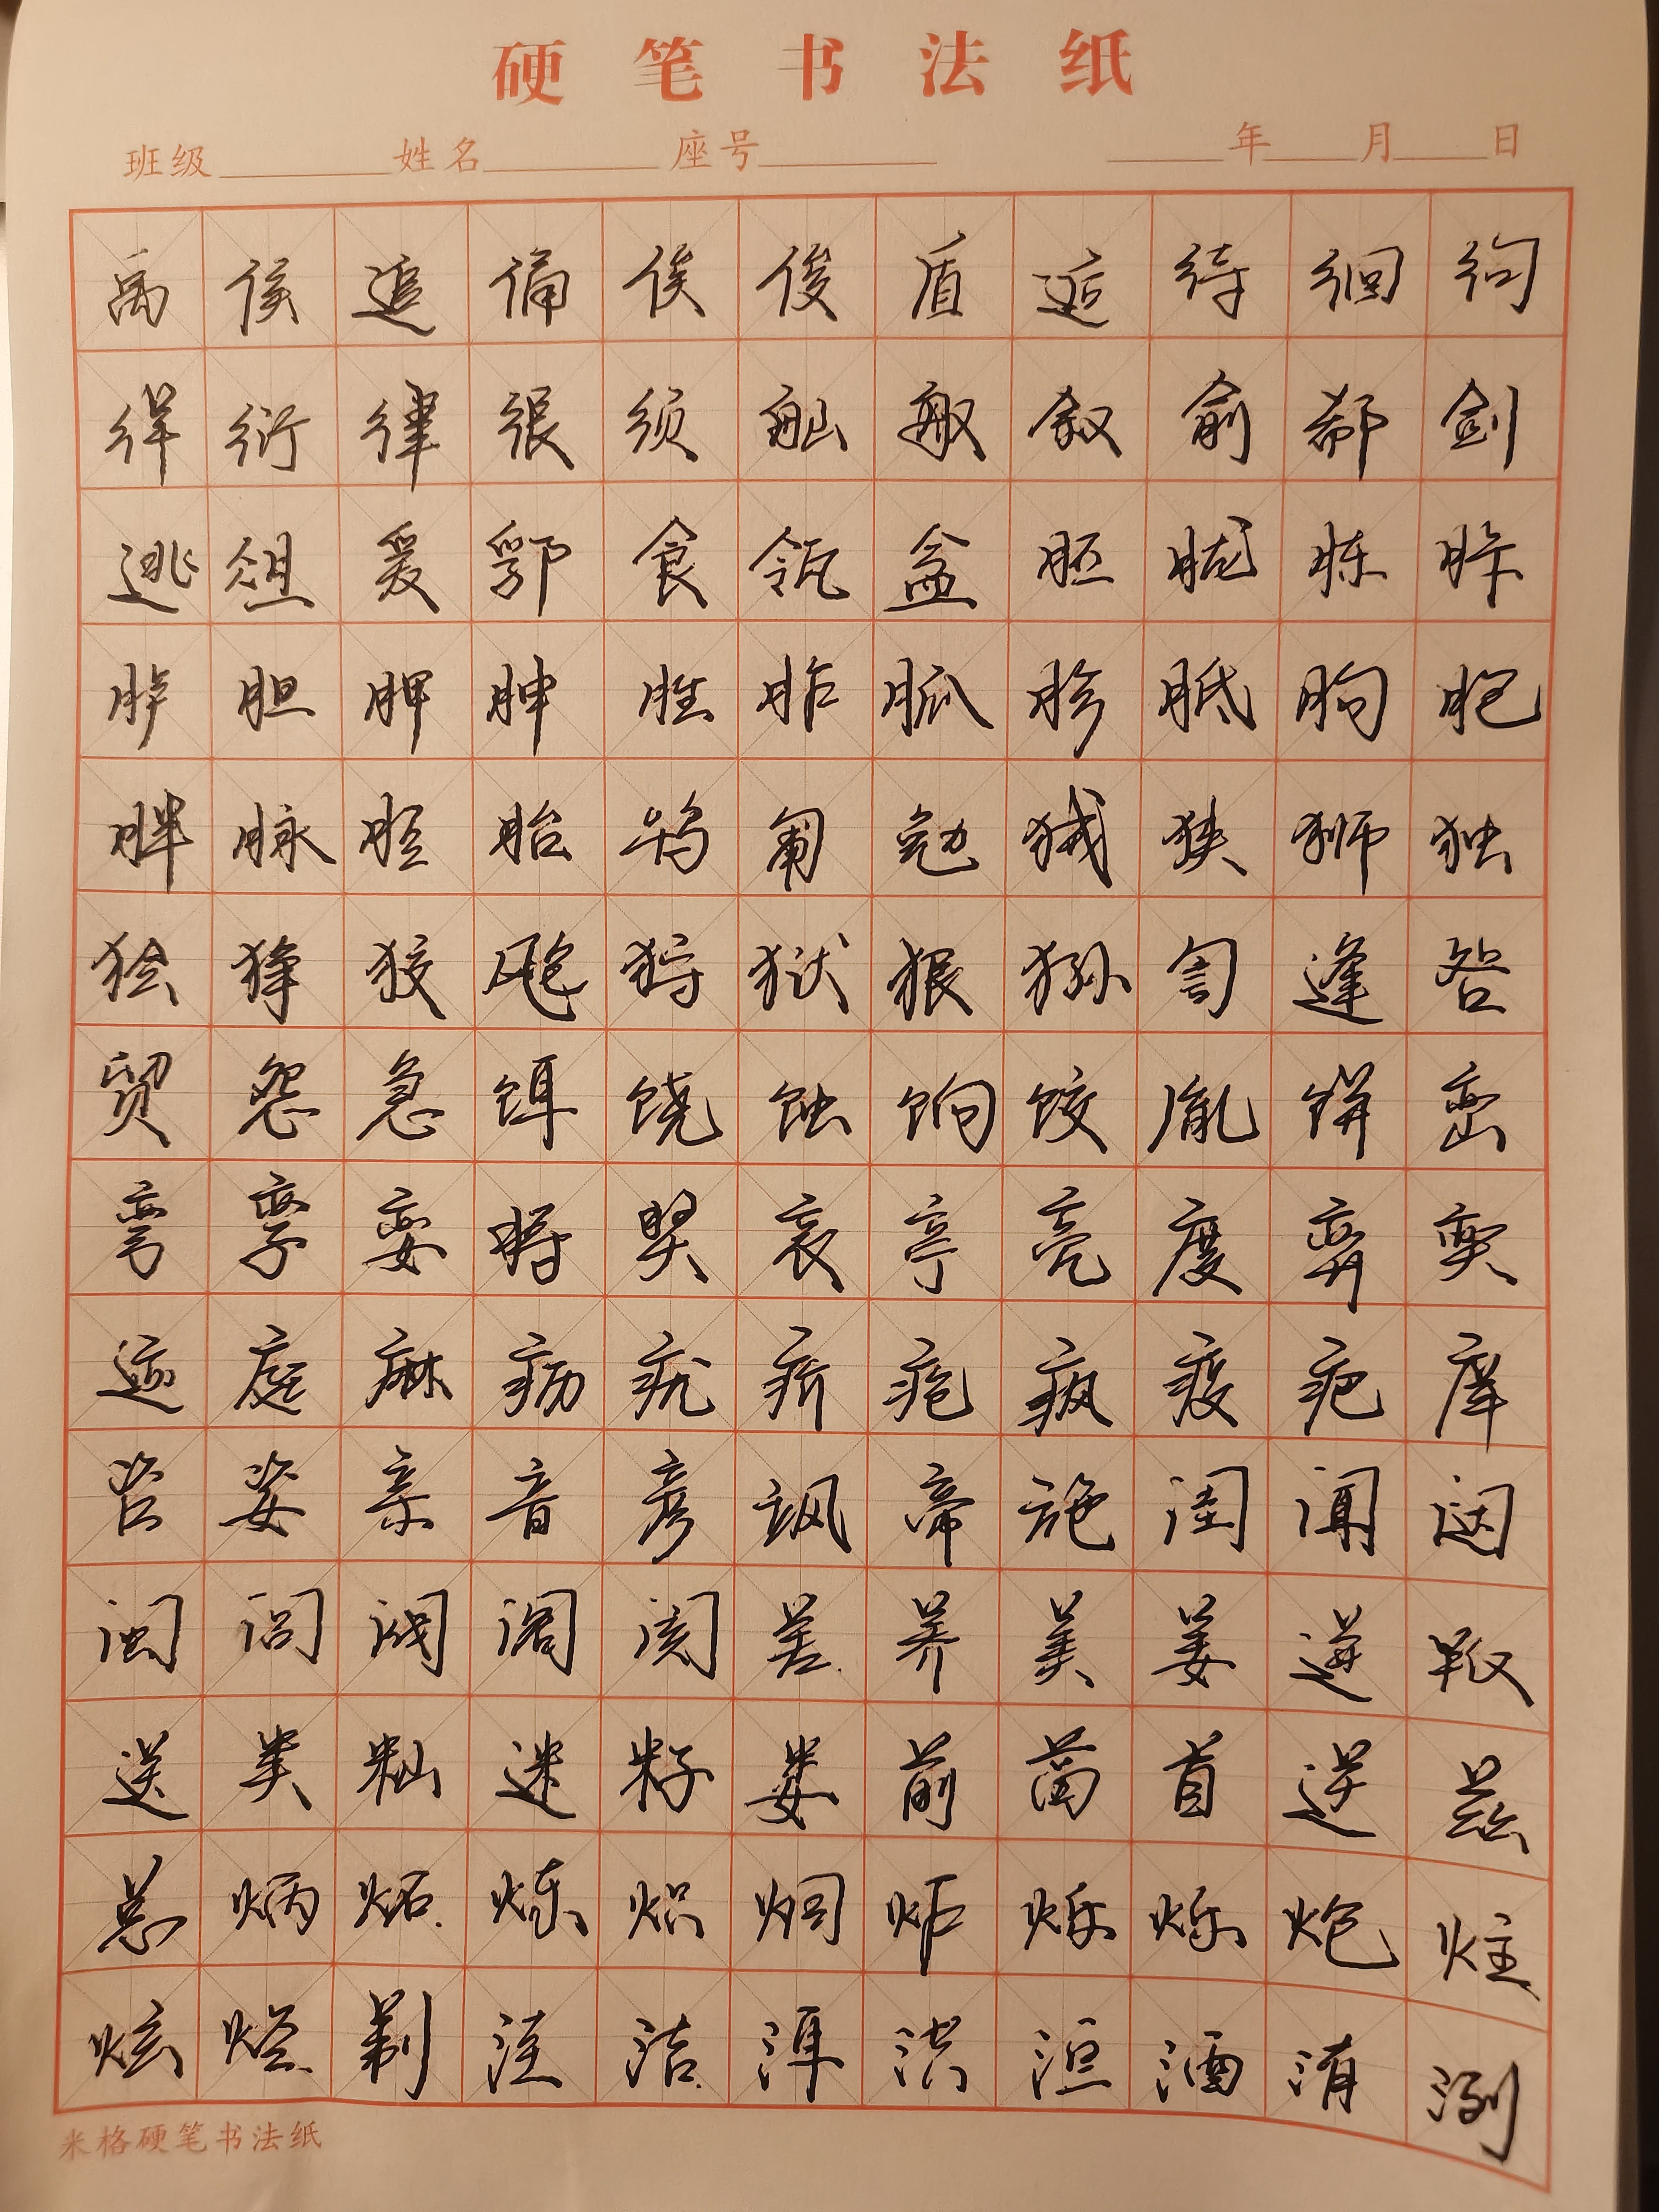 硬笔书法纸
班级 姓名 座号 年 月 日
禹侯追俑俟俊盾逅待徊徇
徉衍律很须舢舣叙俞郗剑
逃俎爰郛食瓴盆胚胧胨胩
胪胆胛胂胜胙胍胗胝朐胞
胖脉胫胎鸨匍勉狨狭狮独
狯狰狡飑狩狱狠狲訇逄昝
贸怨急饵饶蚀饷饺胤饼峦
弯孪娈将奖哀亭亮度弈奕
迹庭庥疬疣疥疮疯疫疤庠
咨姿亲音彦飒帝施闺闻闼
闽闾阀阁阂差养美姜迸叛
送类籼迷籽娄前酋首逆兹
总炳炻炼炽炯炸烁烁炮炷
炫烃剃洼洁洱洪洹洒洧洌
米格硬笔书法纸